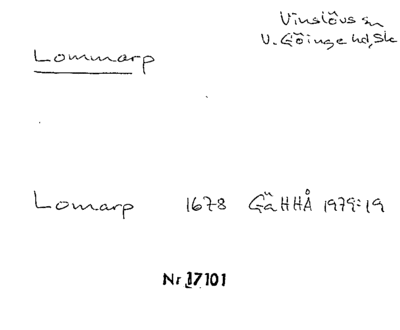 Vinslövs sn
V. Göinge hd, Sk
Lommarp
Lomarp 1678 GäHHÅ 1979:19
Nr 17101